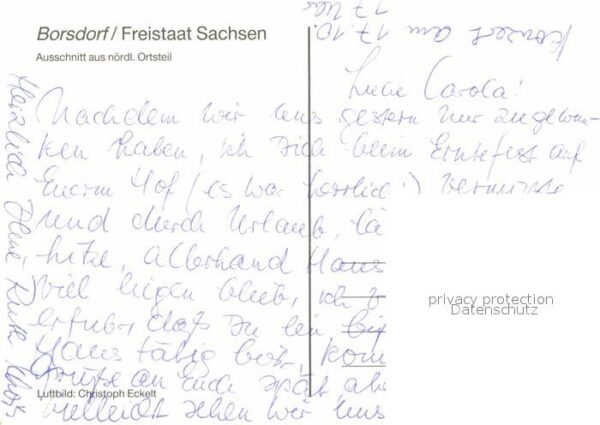 Borsdorf / Freistaat Sachsen
Ausschnitt aus nördl. Ortsteil
Liebe Carola!
Nachdem wir uns gestern nur zugewun-
ken haben, ich Dich beim Erntefest auf
Eurem Hof (es war herrlich!) vermisste
und durch Urlaub,
hitze, allerhand Haus
viel liegen blieb, ich
erfuhr, daß Du bei
Haus tätig bist, kom
Grüße an Euch spät abe
vielleicht sehen wir uns
Konzert am 17.10.
17 Uhr
Herzlich Deine Ruth
privacy protection
Datenschutz
Luftbild: Christoph Eckelt